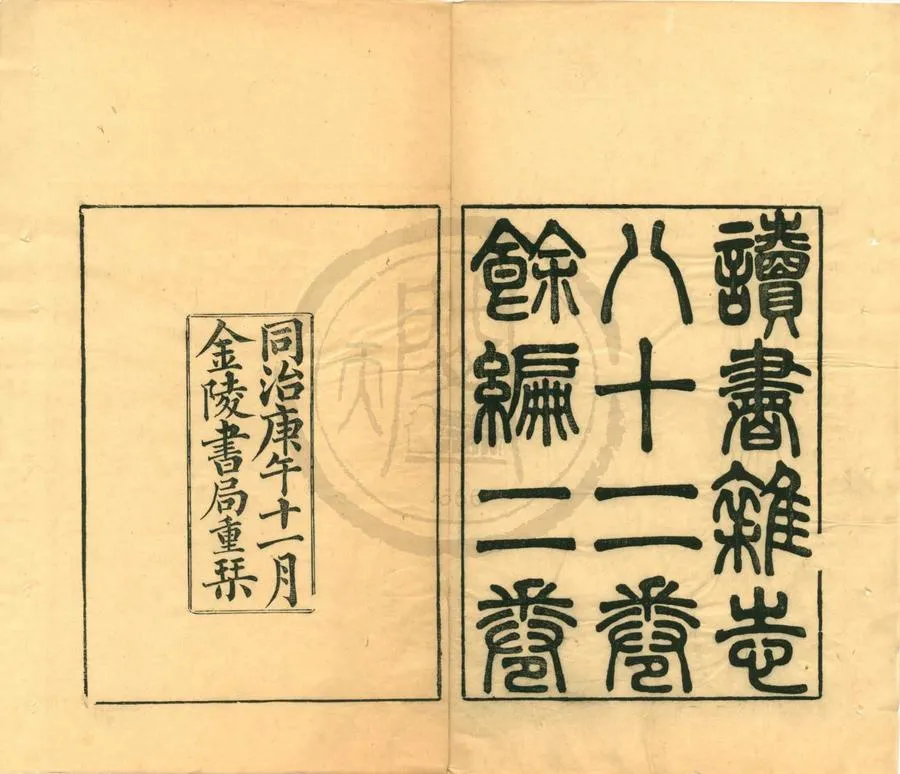 讀書雜志
八十二卷
餘編二卷
同治庚午十一月
金陵書局重栞